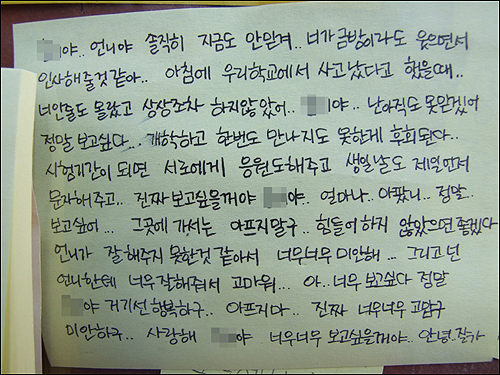 야.. 언니야 솔직히 지금도 안믿겨.. 너가 금방이라도 웃으면서
인사해줄것같아.. 아침에 우리학교에서 사고났다고 했을때..
너인줄도 몰랐고 상상조차 하지않았어.. 야.. 난아직도 못믿겠어
정말 보고싶다... 개학하고 한번도 만나지도 못한게 후회된다..
시험기간이 되면 서로에게 응원도해주고 생일날도 제일먼저
문자해주고.. 진짜 보고싶을꺼야 야.. 얼마나.. 아팠니.. 정말..
보고싶어... 그곳에 가서는 아프지말구.. 힘들어하지 않았으면 좋겠다
언니가 잘해주지 못한것 같아서 너무너무 미안해... 그리고 넌
언니한테 너무잘해줘서 고마워... 아.. 너무 보고싶다 정말
야 거기선 행복하구.. 아프지마.. 진짜 너무너무 고맙구
미안하구.. 사랑해 야.. 너무너무 보고싶을꺼야.. 안녕.. 잘가